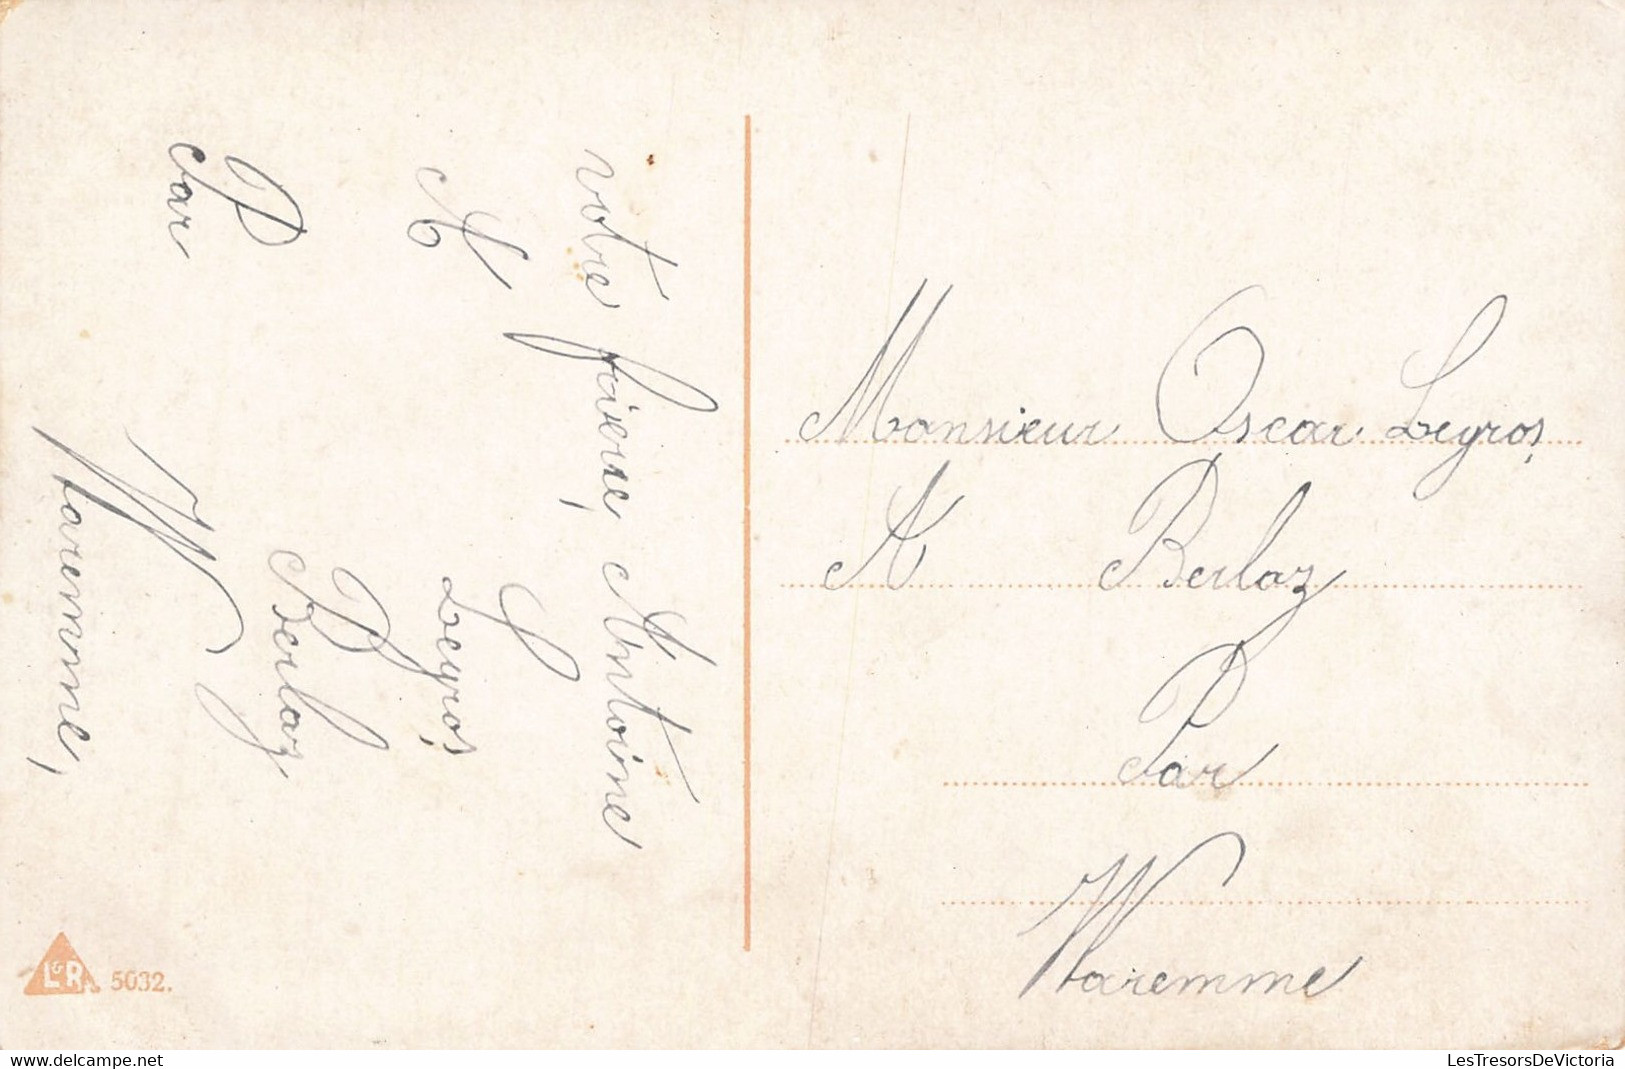 votre foiere, Antoine
A Legros,
Berlaz
Par
Waremme,
Monsieur Oscar Legros,
A Berlaz
Par
Waremme
L&R. 5032.
LesTresorsDeVictoria